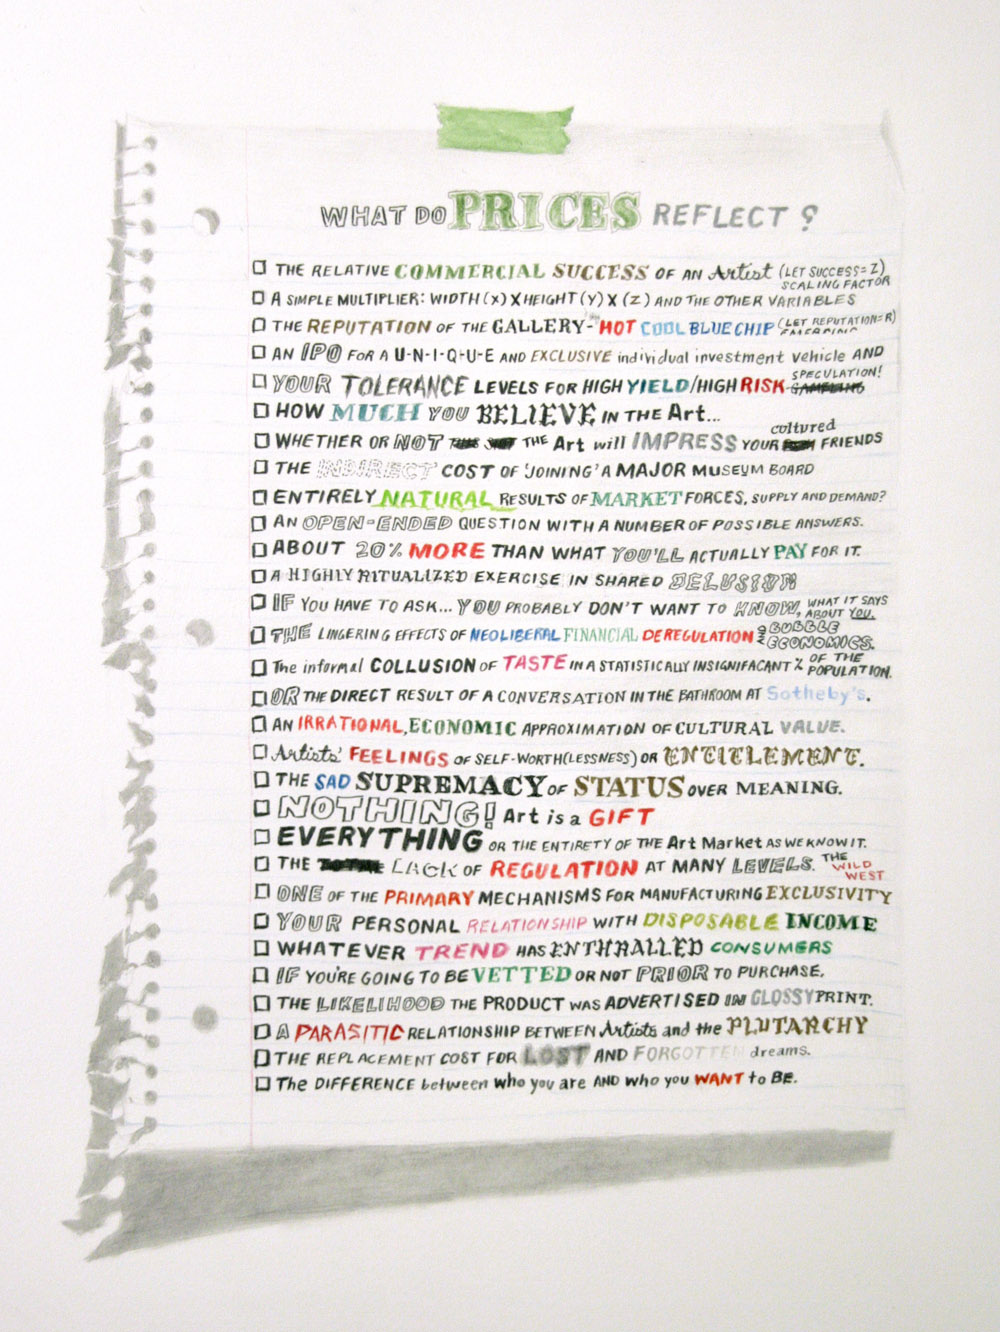 WHAT DO PRICES REFLECT?
THE RELATIVE COMMERCIAL SUCCESS OF AN Artist (LET SUCCESS=Z) SCALING FACTOR
A SIMPLE MULTIPLIER: WIDTH (X) X HEIGHT (Y) X (Z) AND THE OTHER VARIABLES
THE REPUTATION OF THE GALLERY- HOT COOL BLUE CHIP (LET REPUTATION=R)
AN IPO FOR A U-N-I-Q-U-E AND EXCLUSIVE individual investment vehicle AND SPECULATION!
YOUR TOLERANCE LEVELS FOR HIGH YIELD/HIGH RISK GAMBLING
HOW MUCH YOU BELIEVE IN THE Art...
WHETHER OR NOT THE Art will IMPRESS YOUR cultured FRIENDS
THE INDIRECT COST OF 'JOINING' A MAJOR MUSEUM BOARD
ENTIRELY NATURAL RESULTS OF MARKET FORCES, SUPPLY AND DEMAND?
AN OPEN-ENDED QUESTION WITH A NUMBER OF POSSIBLE ANSWERS.
ABOUT 20% MORE THAN WHAT YOU'LL ACTUALLY PAY FOR IT.
A HIGHLY RITUALIZED EXERCISE IN SHARED DELUSION
IF YOU HAVE TO ASK... YOU PROBABLY DON'T WANT TO KNOW, WHAT IT SAYS ABOUT YOU.
THE LINGERING EFFECTS OF NEOLIBERAL FINANCIAL DEREGULATION AND BUBBLE ECONOMICS.
The informal COLLUSION OF TASTE IN A STATISTICALLY INSIGNIFACANT % OF THE POPULATION.
OR THE DIRECT RESULT OF A CONVERSATION IN THE BATHROOM AT Sotheby's.
AN IRRATIONAL, ECONOMIC APPROXIMATION OF CULTURAL VALUE.
Artists' FEELINGS OF SELF-WORTH(LESSNESS) OR ENTITLEMENT.
THE SAD SUPREMACY OF STATUS OVER MEANING.
NOTHING! Art is a GIFT
EVERYTHING OR THE ENTIRETY OF THE Art Market AS WE KNOW IT.
THE LACK OF REGULATION AT MANY LEVELS. THE WILD WEST
ONE OF THE PRIMARY MECHANISMS FOR MANUFACTURING EXCLUSIVITY
YOUR PERSONAL RELATIONSHIP WITH DISPOSABLE INCOME
WHATEVER TREND HAS ENTHRALLED CONSUMERS
IF YOU'RE GOING TO BE VETTED OR NOT PRIOR TO PURCHASE.
THE LIKELIHOOD THE PRODUCT WAS ADVERTISED IN GLOSSY PRINT.
A PARASITIC RELATIONSHIP BETWEEN Artists and the PLUTARCHY
THE REPLACEMENT COST FOR LOST AND FORGOTTEN dreams.
The DIFFERENCE between who you are AND who you WANT to BE.